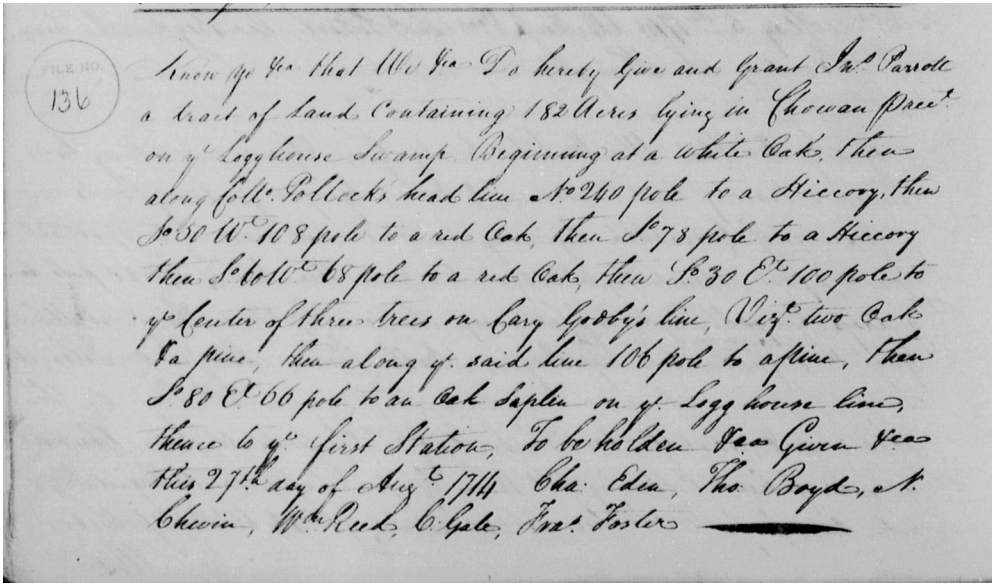 FILE NO.
136
Know ye &ca that We &ca Do hereby Give and Grant Jno. Parrott
a tract of Land Containing 182 Acres lying in Chowan Prect.
on ye Logghouse Swamp. Beginning at a White Oak, then
along Collo. Pollocks head line No 240 pole to a Hiccory, then
So. 50 Wt. 108 pole to a red Oak, then So. 78 pole to a Hiccory
then So. 60 Wt 68 pole to a red Oak, then So. 30 Et. 100 pole to
ye Center of three trees on Cary Godby's line, Vizt. two Oak
& a pine, then along ye. said line 106 pole to a pine, then
So. 80 Et. 66 pole to an Oak Saplen on ye. Logg house line,
thence to ye. first Station, To be holden &ca Given &ca
this 27th day of Augt. 1714 Cha: Eden, Tho. Boyd, N.
Chevin, Wm Reed, C. Gale, Fras. Foster